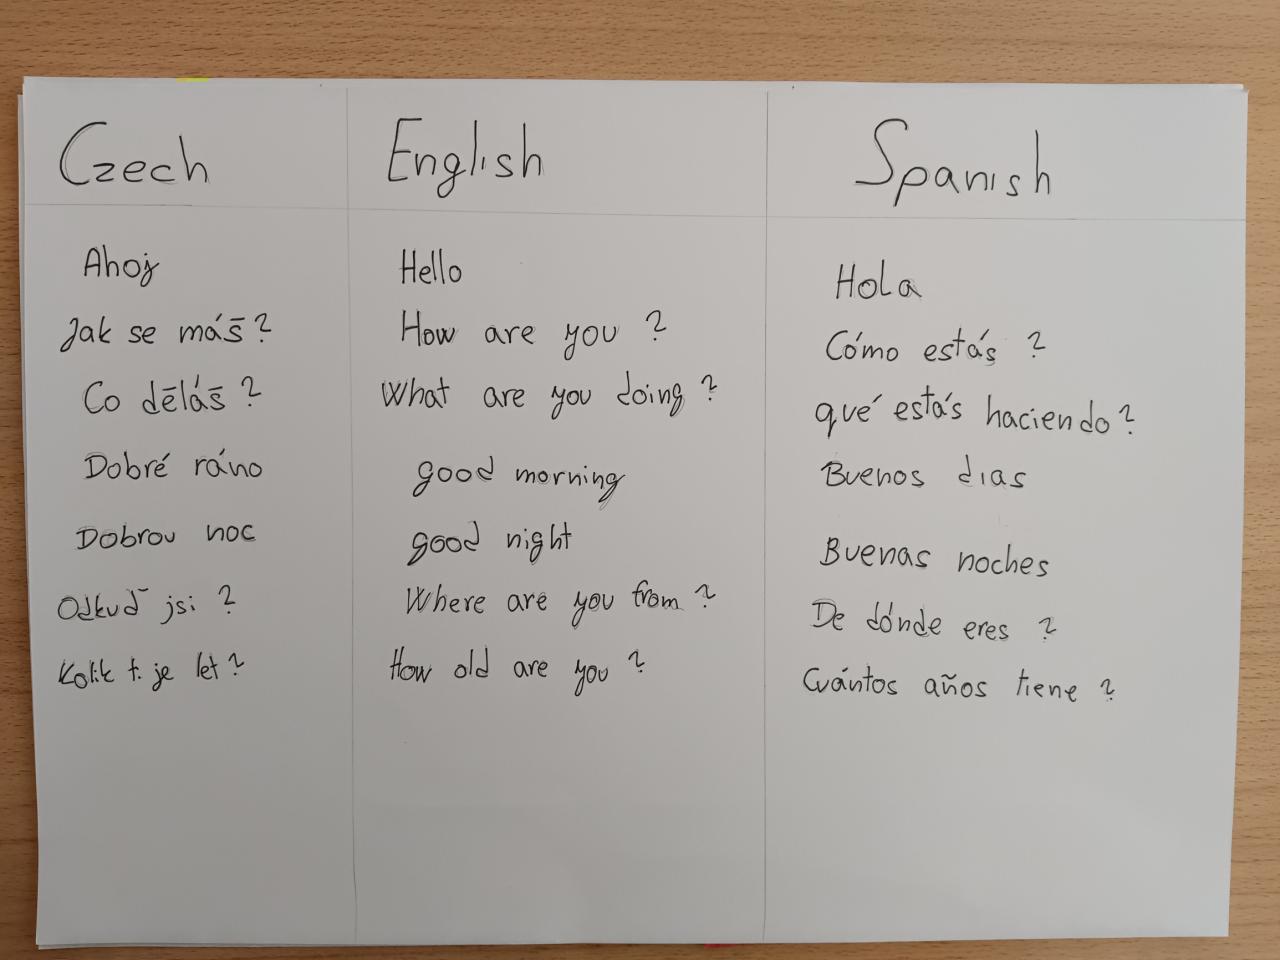 Czech English Spanish
Ahoj Hello Hola
Jak se máš? How are you? Cómo estás?
Co děláš? What are you doing? qué estás haciendo?
Dobré ráno good morning Buenos dias
Dobrou noc good night Buenas noches
Odkuď jsi? Where are you from? De dónde eres?
Kolik ti je let? How old are you? Cuántos años tiene?